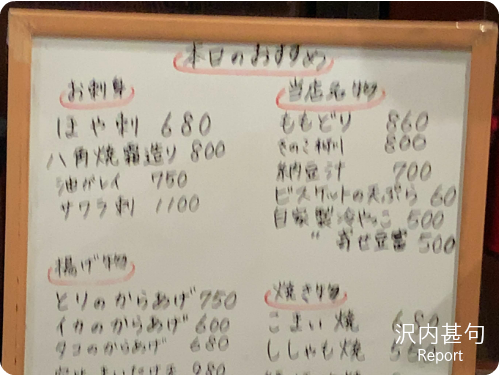 本日のおすすめ
お刺身
ほや刺 680
八角焼霜造り 800
油がレイ 750
サワラ刺 1100
当店名物
ももどり 860
きのこ 800
納豆汁 700
ビスケットの天ぷら 60
自家製冷やっこ 500
〃 寄せ豆富 500
揚げ物
とりのからあげ 750
イカのからあげ 600
タコのからあげ 680
980
焼き物
こまい焼 680
ししゃも焼
沢内甚句
Report